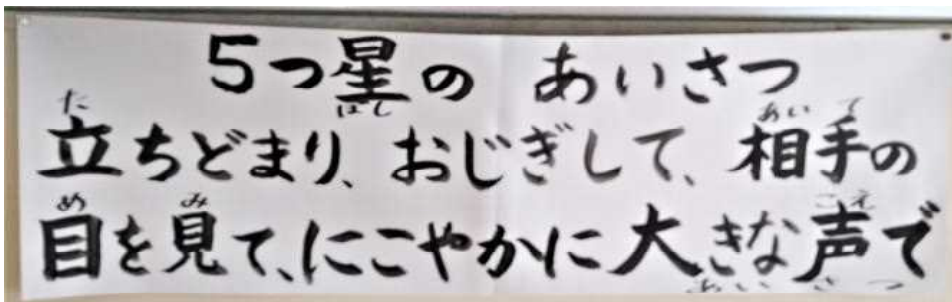 5つ星の あいさつ
立ちどまり、おじぎして、相手の
目を見て、にこやかに大きな声で